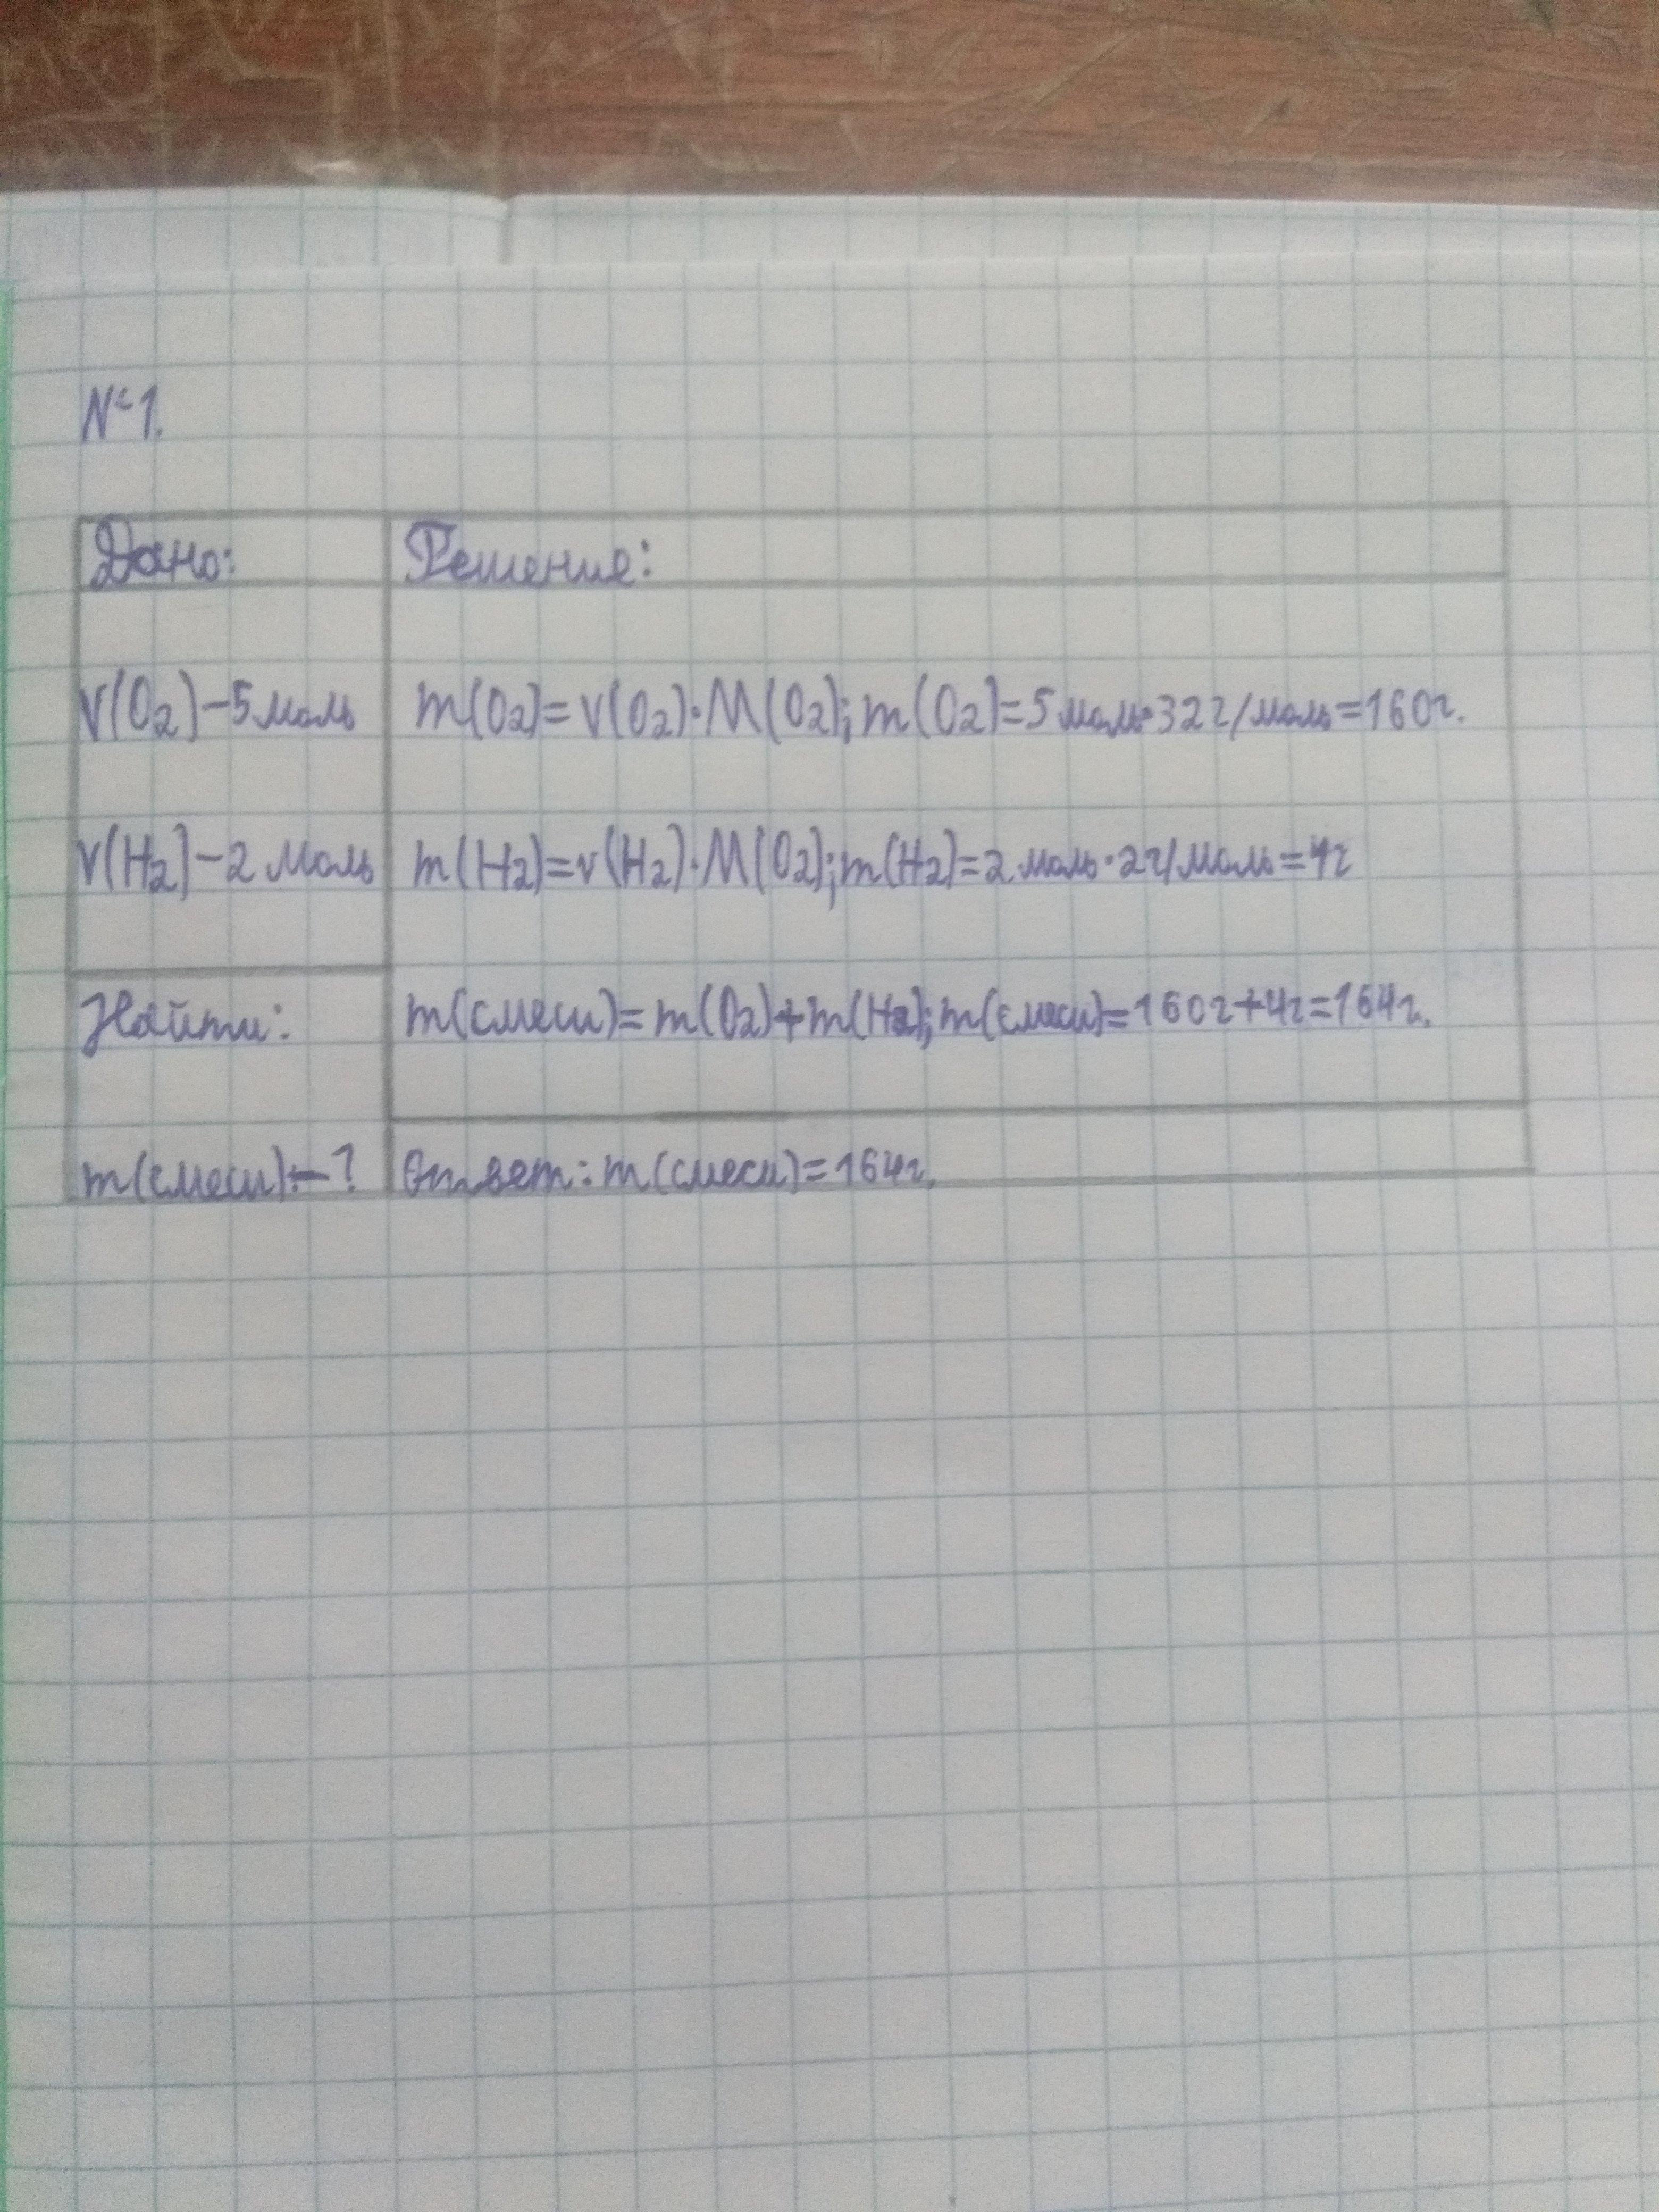 №1.
Дано:
Решение:
ν(O₂)–5 моль
m(O₂)=ν(O₂)·M(O₂); m(O₂)=5 моль·32 г/моль=160г.
ν(H₂)–2 моль
m(H₂)=ν(H₂)·M(O₂); m(H₂)=2 моль·2г/моль=4г
Найти:
m(смеси)=m(O₂)+m(H₂); m(смеси)=160г+4г=164г.
m(смеси)–?
Ответ: m(смеси)=164г.